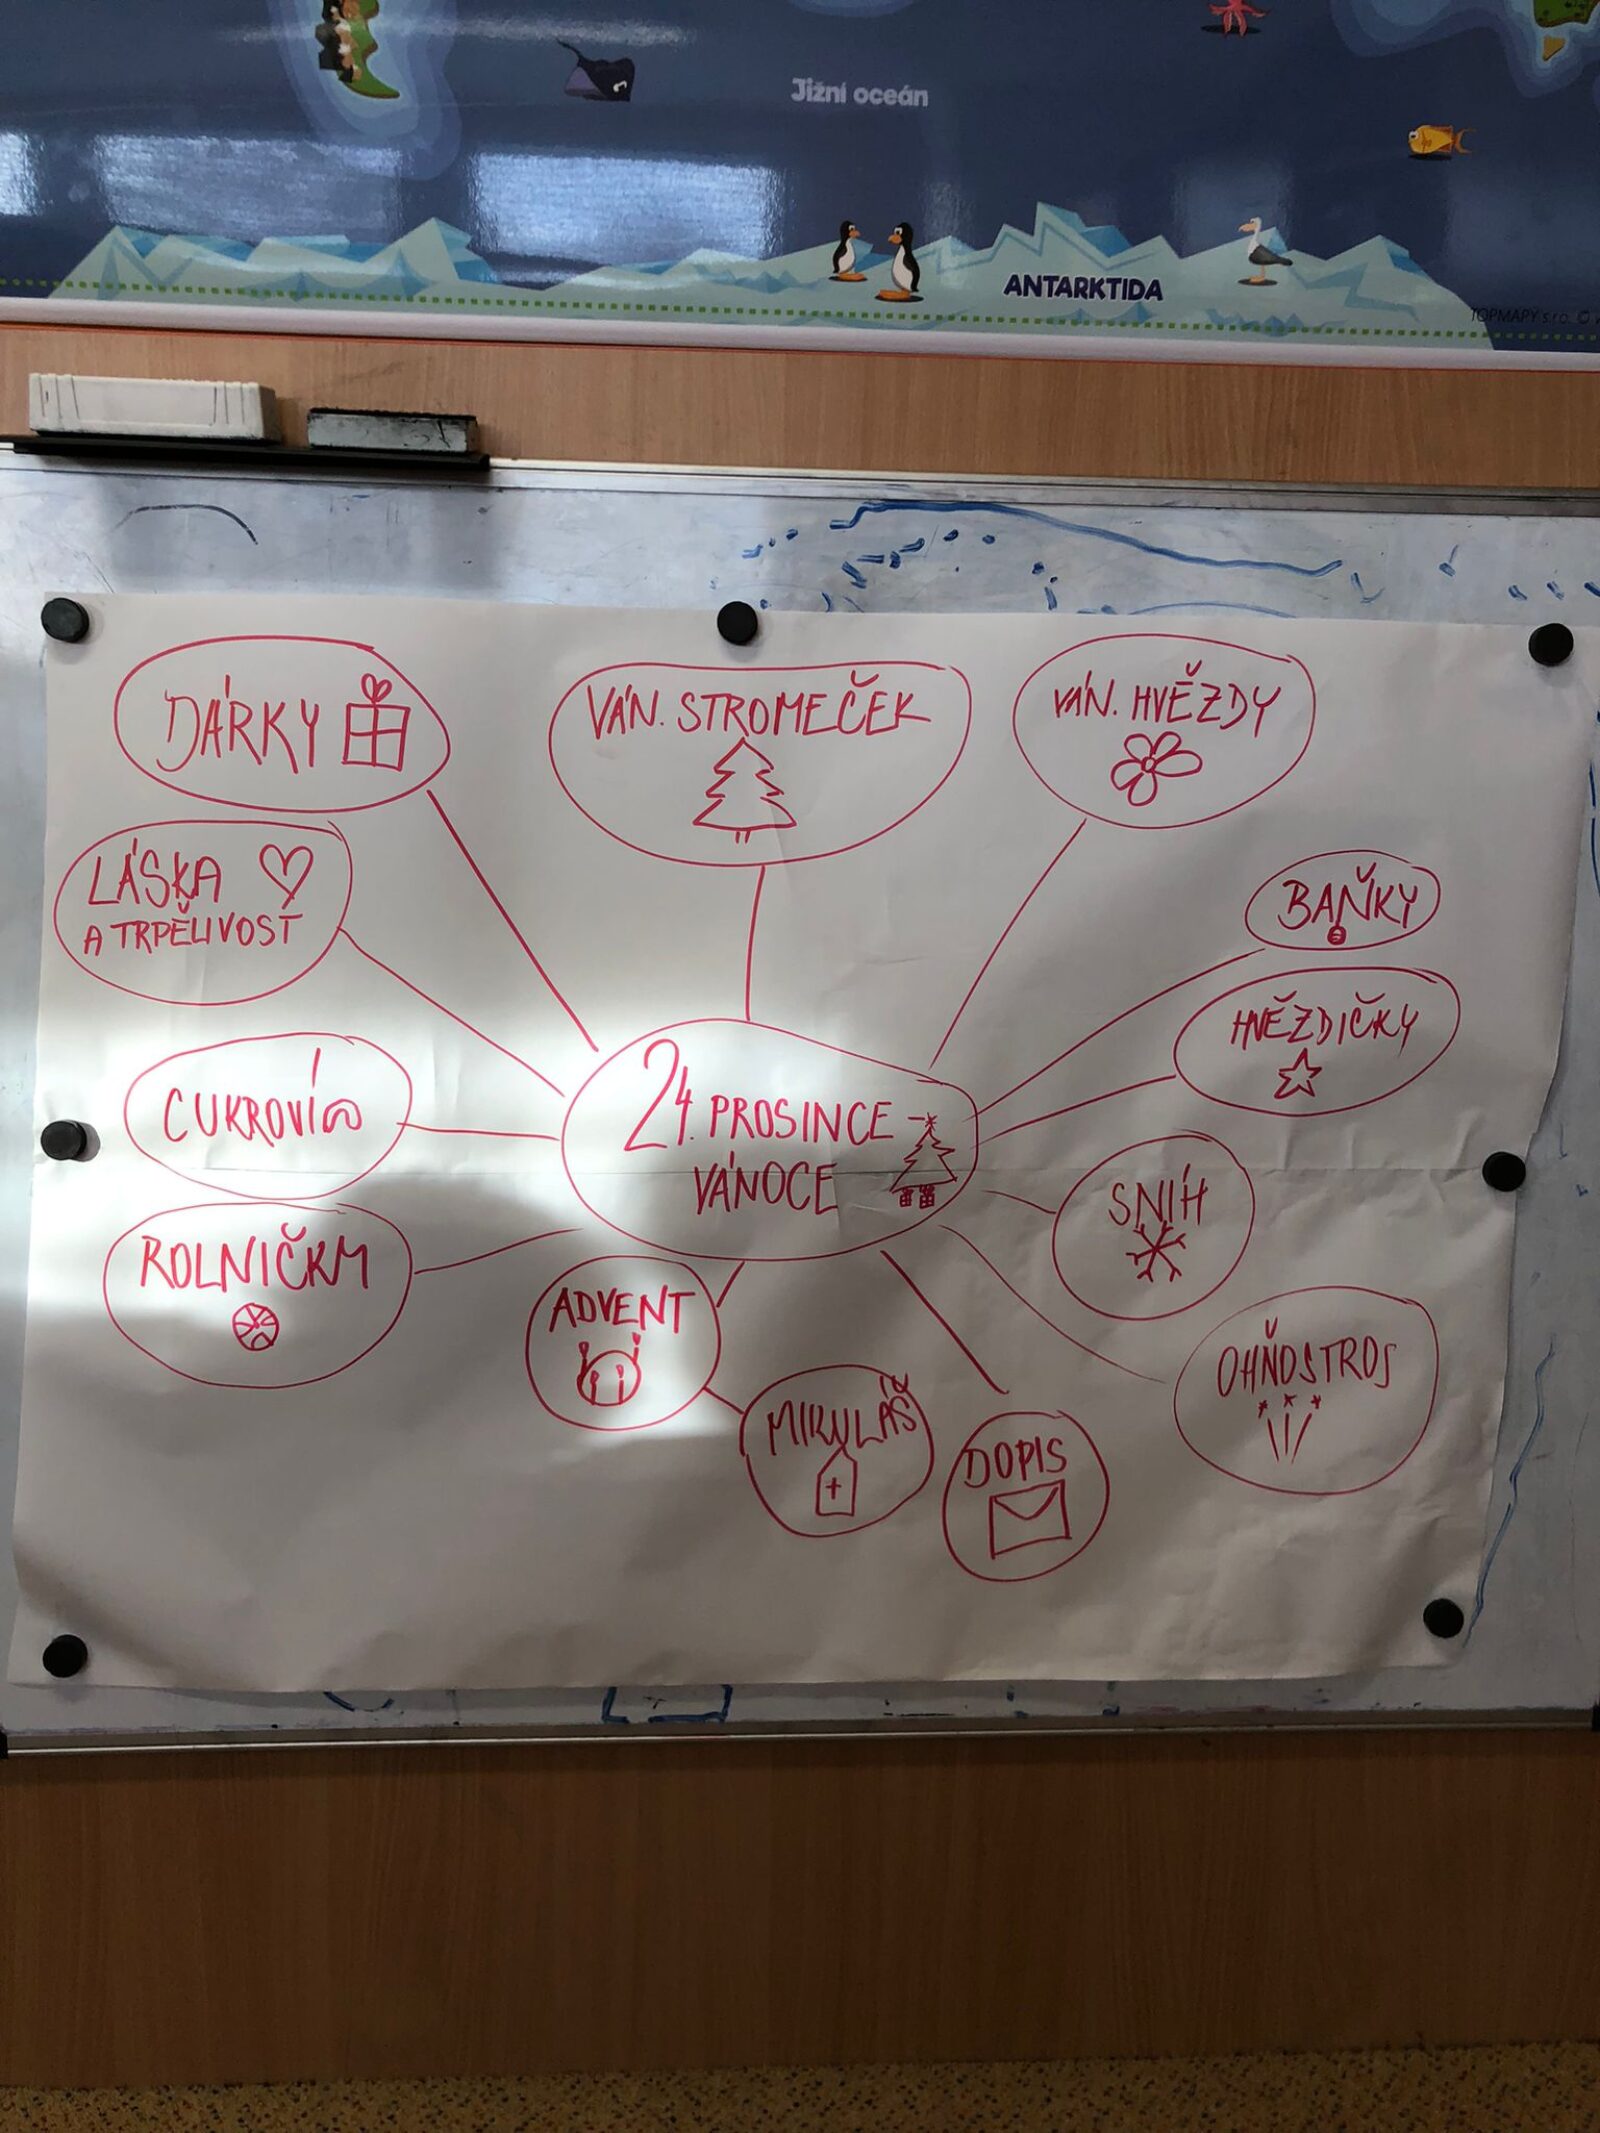 Jižní oceán
ANTARKTIDA
TOPMAPY s.r.o. ©
DÁRKY
VÁN. STROMEČEK
VÁN. HVĚZDY
LÁSKA
A TRPĚLIVOST
BAŇKY
HVĚZDIČKY
CUKROVÍ
24. PROSINCE -
VÁNOCE
SNIH
ROLNIČKY
ADVENT
OHŇOSTROJ
MIKULÁŠ
DOPIS